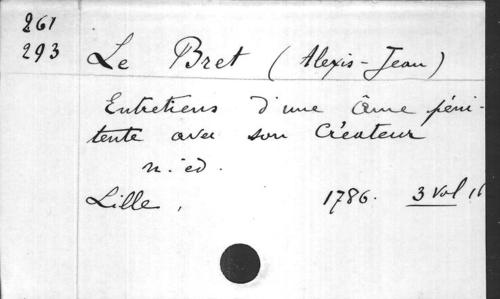 261
293
Le Bret (Alexis-Jean)
Entretiens d'une âme péni-
tente avec son Créateur
n. ed.
Lille, 1786. 3 vol. 16